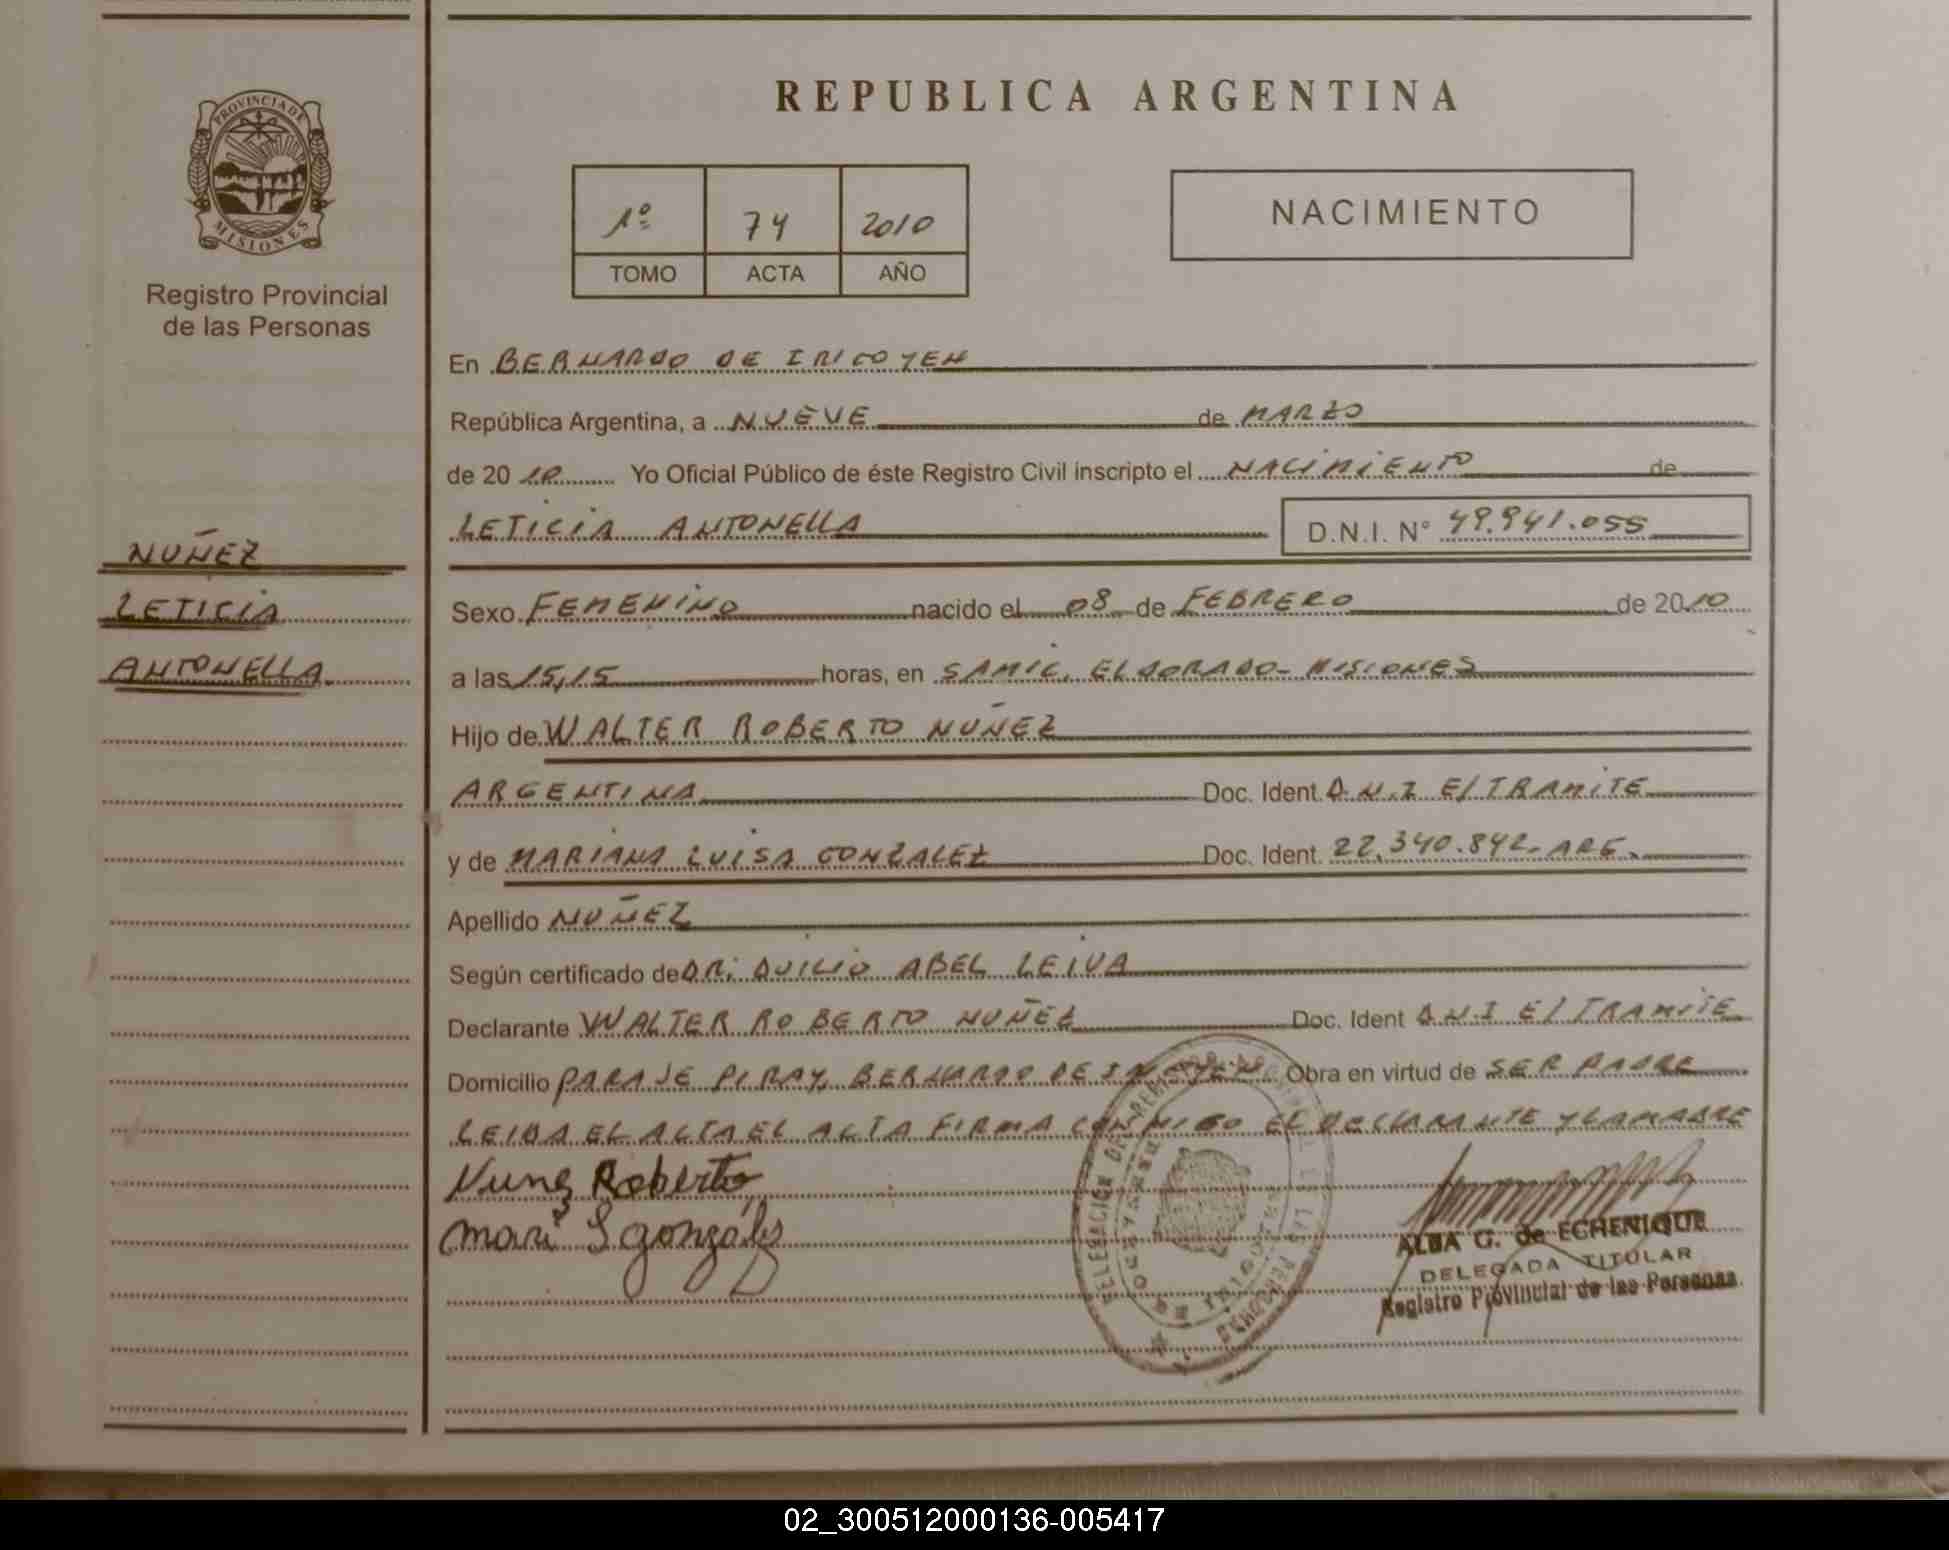 PROVINCIA DE
MISIONES
Registro Provincial
de las Personas
NUÑEZ
LETICIA
ANTONELLA.
REPUBLICA ARGENTINA
1º 74 2010
TOMO ACTA AÑO
NACIMIENTO
En BERNARDO DE IRIGOYEN
República Argentina, a NUEVE de MARZO
de 2010 Yo Oficial Público de éste Registro Civil inscripto el NACIMIENTO de
LETICIA ANTONELLA D.N.I. Nº 49.941.055
Sexo FEMENINO nacido el 08 de FEBRERO de 2010
a las 15,15 horas, en SAMIC. ELDORADO- MISIONES
Hijo de WALTER ROBERTO NUÑEZ
ARGENTINA Doc. Ident. D.N.I E/TRAMITE
y de MARIANA LUISA GONZALEZ Doc. Ident. 22.340.842- ARG.
Apellido NUÑEZ
Según certificado de DR. DUILIO ABEL LEIVA
Declarante WALTER ROBERTO NUÑEZ Doc. Ident D.N.I E/TRAMITE
Domicilio PARAJE PIRAY, BERNARDO DE IRIGOYEN Obra en virtud de SER PADRE
LEIDA EL ACTA EL ACTA FIRMA CONMIGO EL DECLARANTE Y LA MADRE
Nuñez Roberto
mari L gonzáles
DELEGACION DEL REGISTRO
DE LAS PERSONAS
ALBA G. de ECHENIQUE
DELEGADA TITULAR
Registro Provincial de las Personas
02_300512000136-005417